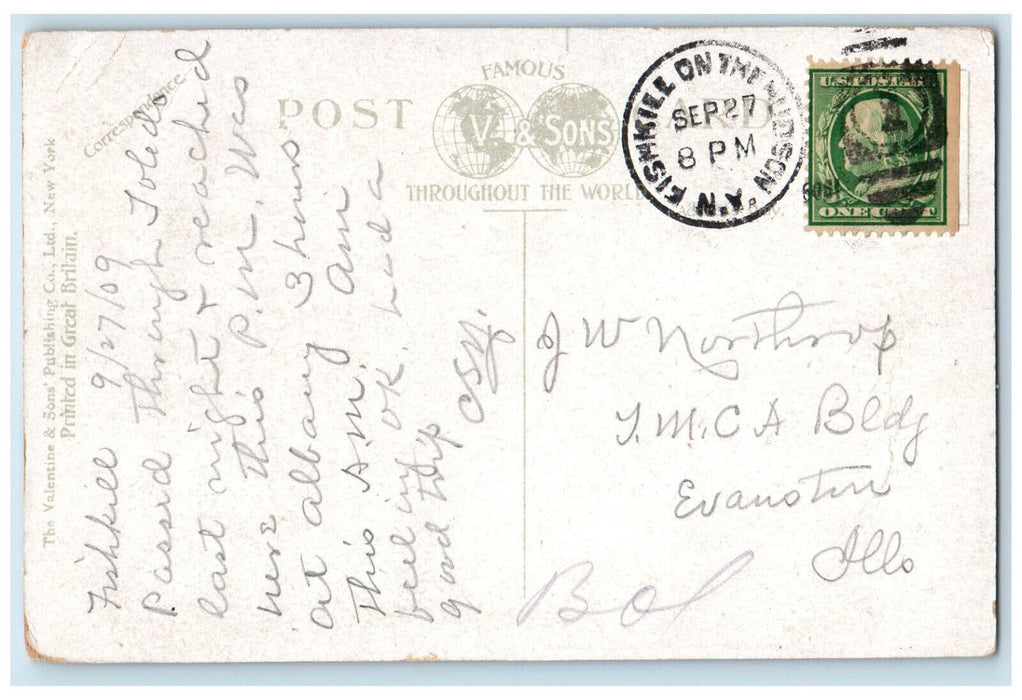 Correspondence
POST CARD
FAMOUS
V. & SONS
THROUGHOUT THE WORLD
The Valentine & Sons' Publishing Co., Ltd., New York
Printed in Great Britain.
FISHKILL ON THE HUDSON N.Y.
SEP 27
8 PM
U.S. POSTAGE
ONE CENT
Fishkill 9/27/09
Passd through Toledo
last night & reached
here this P.M. Was
at albany 3 hours
This A.M. Am
feeling OK. had a
good trip
J W Northrop
Y.M.C A Bldg
Evanston
Ills